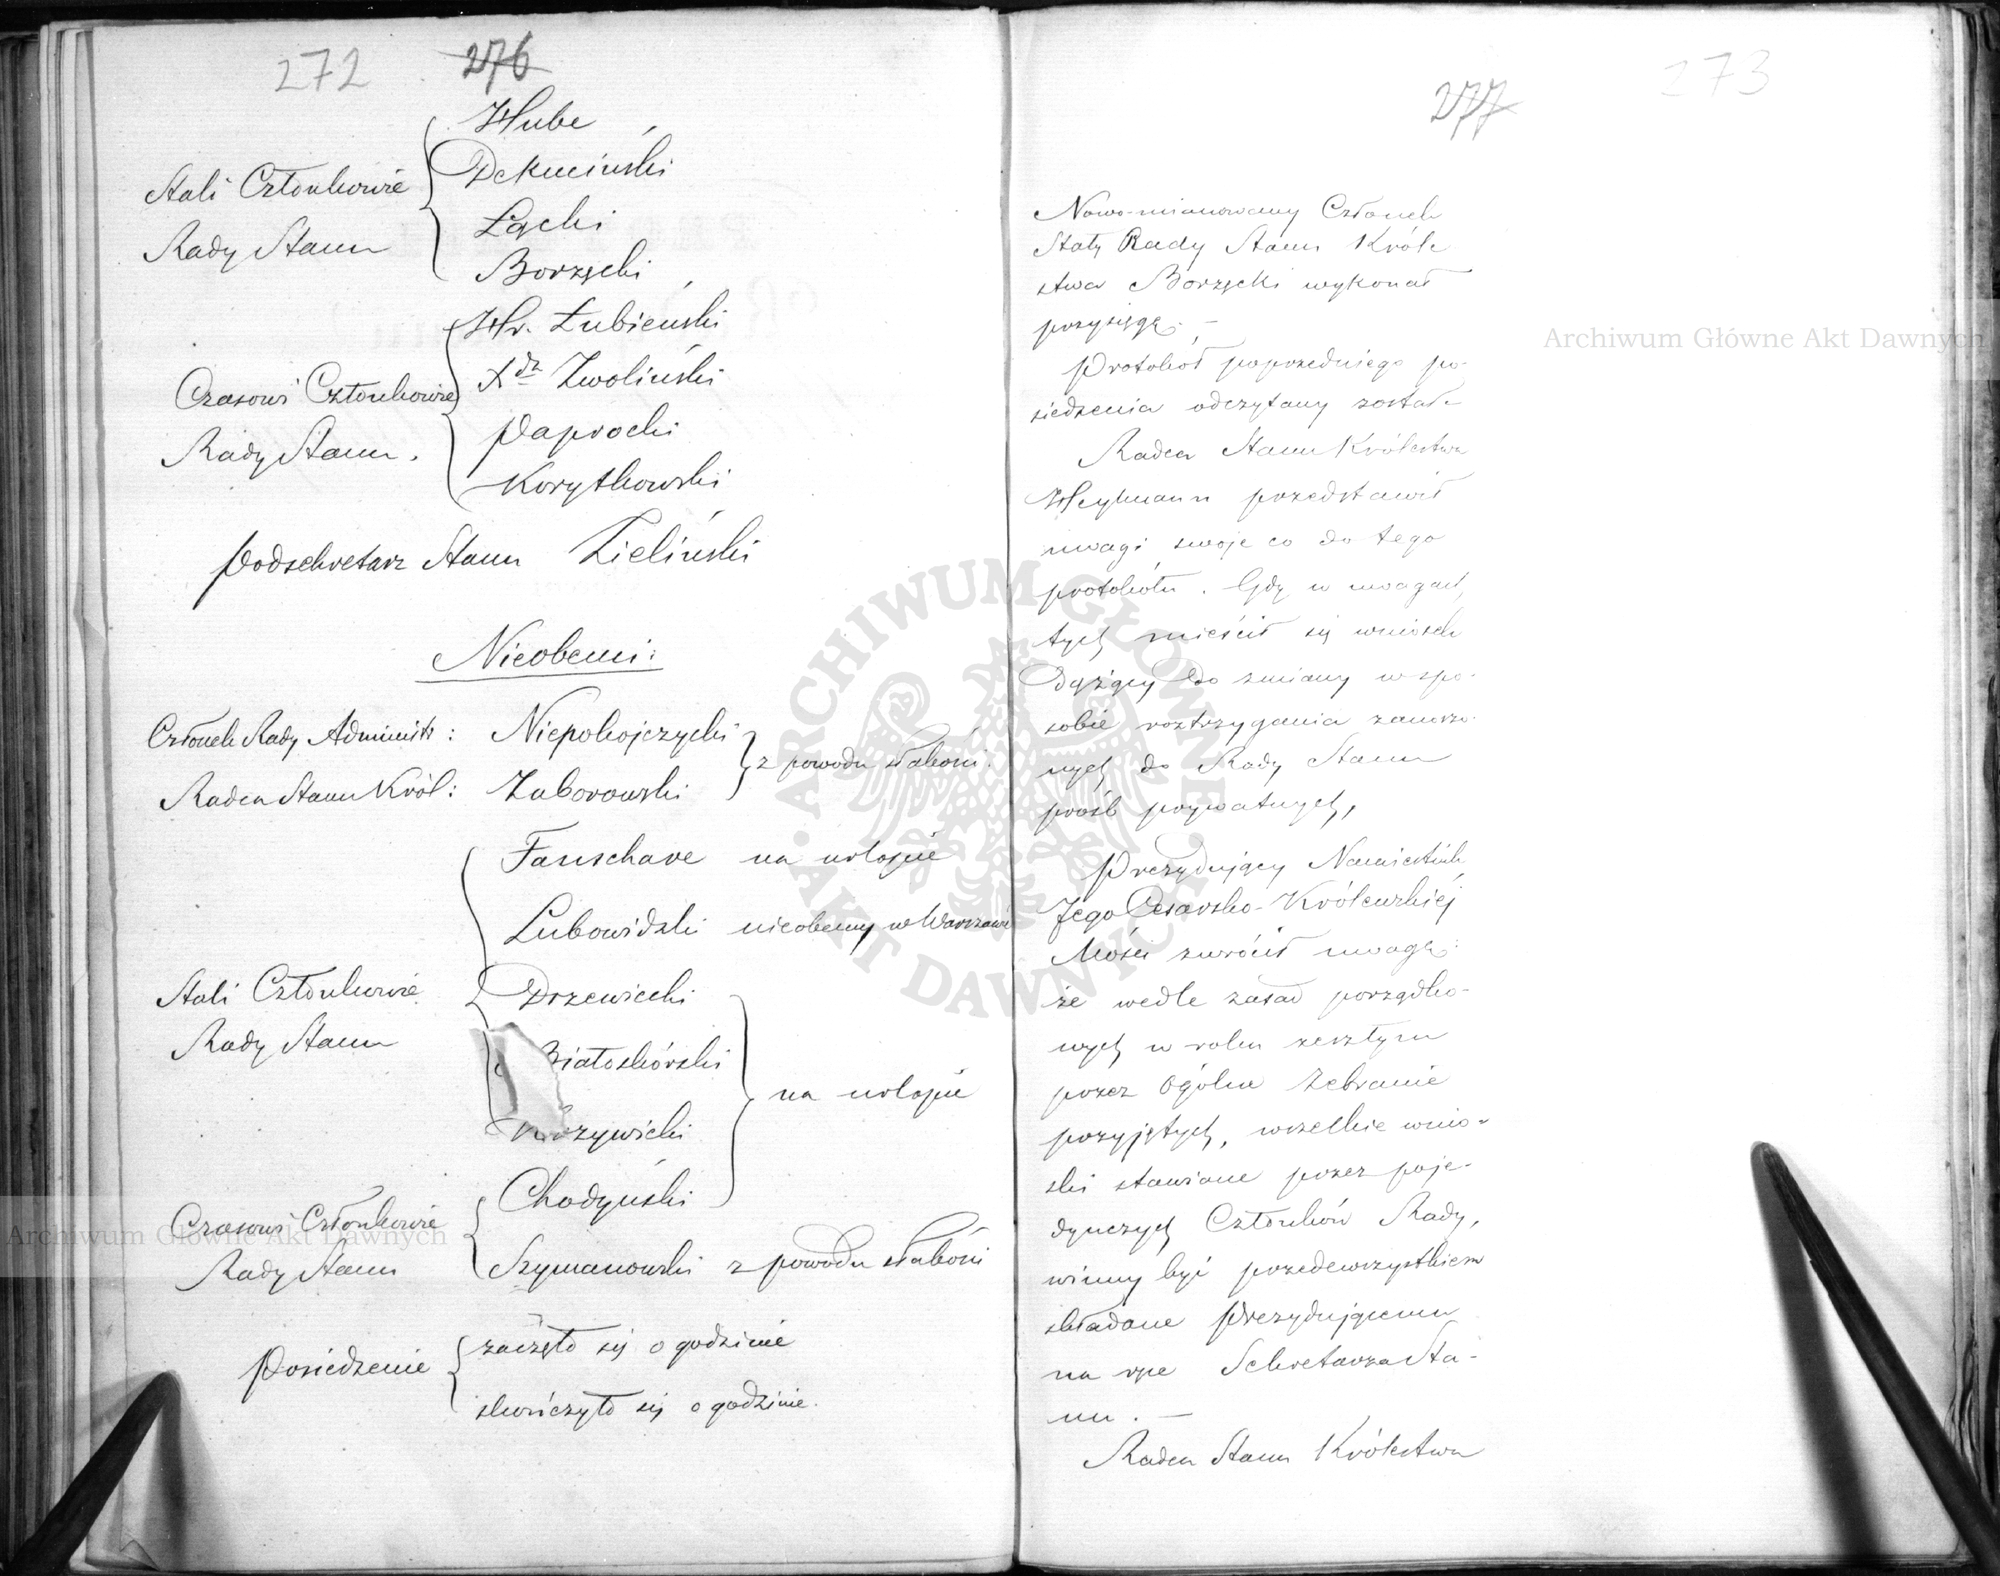 272 276
Hube
Dekuciński
Stali Członkowie
Łącki
Rady Stanu
Borzęcki
Hr. Łubieński
Xdz Zwoliński
Czasowi Członkowie
Paprocki
Rady Stanu.
Korytkowski
Podsekretarz Stanu Zieliński
Nieobecni:
Członek Rady Administr: Niepokojczycki
z powodu słabości.
Radca Stanu Król: Zaborowski
Fanschave na urlopie
Lubowidzki nieobecny w Warszawie
Stali Członkowie Drzewiecki
Rady Stanu
Białoskórski
na urlopie
Krzywicki
Chodyński
Czasowi Członkowie
Rady Stanu Szymanowski z powodu słabości
zaczęło się o godzinie
Posiedzenie
skończyło się o godzinie.
277 273
Nowo-mianowany Członek
Stały Rady Stanu Króle
stwa Borzęcki wykonał
przysięgę. —
Protokół poprzedniego po-
siedzenia odczytany został.
Radca Stanu Królestwa
Heylmann przedstawił
uwagi swoje co do tego
protokółu. Gdy w uwagach
tych mieścił się wniosek
dążący do zmiany w spo-
sobie roztrzygania zanoszo-
nych do Rady Stanu
próśb prywatnych,
Prezydujący Namiestnik
Jego Cesarsko-Królewskiéj
Mości zwrócił uwagę:
że wedle zasad porządko-
wych w roku zeszłym
przez Ogólne Zebranie
przyjętych, wszelkie wnio-
ski stawiane przez poje-
dynczych Członków Rady,
winny być przedewszystkiem
składane Prezydującemu
na ręce Sekretarza Sta-
nu. —
Radca Stanu Królestwa
Archiwum Główne Akt Dawnych
Archiwum Główne Akt Dawnych
ARCHIWUM GŁÓWNE AKT DAWNYCH